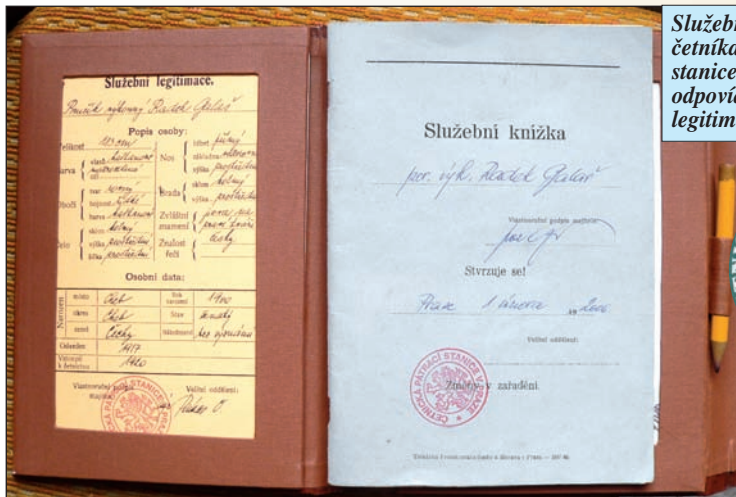 Služební legitimace.
Radek Galaš
Popis osoby:
Velikost 183 cm
Barva { vlasů kaštanové
očí
Nos { hřbet přímý
základna
výška prostřední
Obočí { tvar rovný
hojnost
barva kaštanové
Brada { sklon kolmý
výška prostřední
Čelo { sklon kolmý
výška prostřední
šířka prostřední
Zvláštní znamení
Znalost řečí česky
Osobní data:
Narozen
místo Cheb
Rok narození 1900
okres Cheb
Stav ženatý
země Čechy
Náboženství bez vyznání
Odveden 1917
Vstoupil k četnictvu 1920
Vlastnoruční podpis majitele:
Velitel oddělení:
ČETNICKÁ PÁTRACÍ STANICE V PRAZE
Služební knížka
por. výk. Radek Galaš
Vlastnoruční podpis majitele:
Stvrzuje se!
Praze 1 února 2000
Velitel oddělení:
Změny v zařadění.
ČETNICKÁ PÁTRACÍ STANICE V PRAZE
Služebn
četníka
stanice
odpovíd
legitim